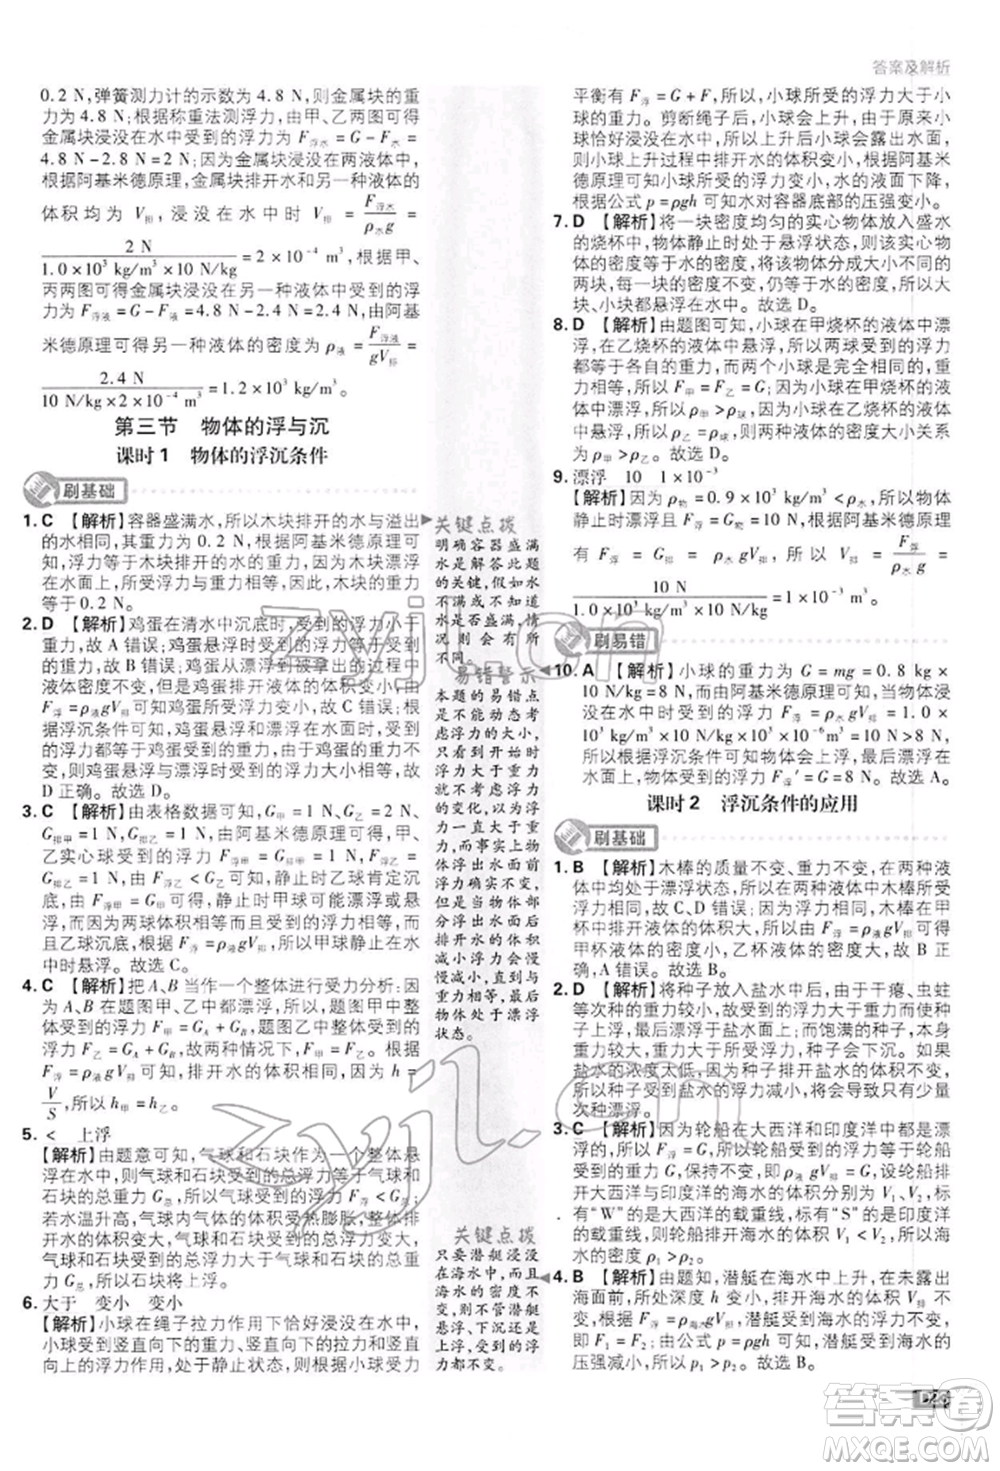 答案及解析
0.2 N,弹簧测力计的示数为 4.8 N,则金属块的重力为4.8 N;根据称重法测浮力,由甲、乙两图可得
金属块浸没在水中时受到的浮力为 F浮水=G-F水=
4.8 N-2.8 N=2 N;因为金属块浸没在两液体中,
根据阿基米德原理,金属块排开水和另一种液体的
体积均为 V排,浸没在水中时 V排=F浮水/ρ水g=
2 N/(1.0×10³ kg/m³×10 N/kg)=2×10⁻⁴ m³,根据甲、
丙两图可得金属块浸没在另一种液体中受到的浮
力为 F浮液=G-F液=4.8 N-2.4 N=2.4 N,由阿基
米德原理可得另一种液体的密度为ρ液=F浮液/gV排=
2.4 N/(10 N/kg×2×10⁻⁴ m³)=1.2×10³ kg/m³。
第三节 物体的浮与沉
课时1 物体的浮沉条件
刷基础
1. C 【解析】容器盛满水,所以木块排开的水与溢出
的水相同,其重力为 0.2 N,根据阿基米德原理可
知,浮力等于木块排开的水的重力,因为木块漂浮
在水面上,所受浮力与重力相等,所以木块的重力
等于 0.2 N。
2. D 【解析】鸡蛋在清水中沉底时,受到的浮力小于
重力,故 A 错误;鸡蛋从漂浮到被拿出的过程中,液
体密度不变,但是鸡蛋排开液体的体积变小,由
F浮=ρ液gV排可知鸡蛋受到的浮力变小,故 C 错误;
根据浮沉条件可知,鸡蛋悬浮和漂浮在水面时,受到
的浮力都等于鸡蛋的重力,而鸡蛋的重力不变,
所以,则鸡蛋悬浮与漂浮时受到的浮力相等,故 B 错误,
D 正确。故选 D。
3. C 【解析】由表格数据可知,G甲=1 N、G乙=2 N,
G排甲=1 N、G排乙=1 N,由阿基米德原理可知,甲、
乙实心球受到的浮力分别是 F浮甲=1 N、F浮乙=
1 N,由浮沉条件可知,静止时乙球肯定沉
底,F浮甲=G甲可得,静止时甲球可能漂浮或悬
浮,因为两球体积相等且受到的浮力相等,而
且乙球沉底,根据 F浮=ρ液gV排可知甲球静止
在水中时悬浮。故选 C。
4. C 【解析】把 A、B 当作一个整体进行受力分析:
因为 A、B 在题图甲、乙中都漂浮,所以题图甲中
物体受到的浮力 F甲=GA+GB,题图乙中物体受到的
浮力 F乙=GA+GB,故两种情况下,F甲=F乙。根据
F浮=ρ液gV排可知,排开水的体积相同,因为 h=
V/S,所以h甲=h乙。
5. < 上浮
【解析】由题意可知,气球和石块作为一个整体恰
好沉入水底,则气球和石块的总浮力小于气球和
石块的总重力 G总,所以气球和石块的总浮力 F浮<G总。
若水温升高,气球内气体的体积会受热膨胀,排开水的体积变大,
气球和石块受到的总浮力大于气球与石块的总
重力 G总,气球和石块将上浮。
6. 大于 变小 变小
【解析】小球在绳子拉力作用下恰好浸没在水中,
小球受到竖直向下的重力、竖直向下的拉力和竖直
向上的浮力作用,处于静止状态,则根据小球受力
关键点拨
明确容器盛满
水是解答此题
的关键,假如水
不满或不知水
水是否盛满,情
况则有所
不同。
易错警示
本题的易错点
是不能动态考
虑浮力的大小,
只看到开始时
浮力大于重力
的变化,以为浮
力一直大于重
力,而事实上物
体浮出水面前
浮力不变,物体
部分浮出水面后
排开水的体积
减小,浮力会
慢慢减小,直到
与重力相等,此时
物体处于漂浮
状态。
关键点拨
只要潜艇浸没
在海水中,而且
海水的密度不
变,不管潜艇
悬浮、下沉还
是上浮,所受浮
力都不变。
平衡有 F浮=G+F,所以,小球所受的浮力大于小
球的重力。剪断绳子后小球会上浮,由于原来小球
水面恰好与容器口相平,小球上升后会露出水面,
则小球上升过程中排开水的体积变小,根据
F浮=ρ液gV排可知小球受到的浮力变小,水的液面下降,
根据公式 p=ρgh 可知水对容器底部的压强变小。
7. D 【解析】将一块密度均匀的实心物体放入盛水
的烧杯中,物体静止时处于悬浮状态,则该物体的
密度等于水的密度,将该物体分成大小不同的
两块,每一块的密度不变,仍等于水的密度,所以大
块、小块都悬浮在水中。故选 D。
8. D 【解析】由题图可知,小球在甲烧杯的液体中漂
浮,在乙烧杯的液体中悬浮,所以两球受到的浮力
都等于自身的重力,由于两小球完全相同,所以
F甲=F乙=G。因为小球在甲烧杯的液体中漂浮,
所以ρ甲>ρ球,因为小球在乙烧杯的液体中悬浮,
所以ρ乙=ρ球,所以ρ甲>ρ乙。故选 D。
9. 漂浮 10 1×10⁻³
【解析】因为ρ物=0.9×10³ kg/m³<ρ水,所以物体
静止时漂浮,F浮=G物=10 N,根据阿基米德原理
有 F浮=G排=ρ水gV排,所以 V排=F浮/ρ水g=
10 N/(1.0×10³ kg/m³×10 N/kg)=1×10⁻³ m³。
刷易错
10. A 【解析】小球的重力为 G=mg=0.8 kg×
10 N/kg=8 N,由阿基米德原理可知,物体浸没
时受到的浮力为 F浮=ρ水gV排=1.0×
10³ kg/m³×10 N/kg×1 000×10⁻⁶ m³=10 N>8 N,
所以根据浮沉条件可知物体会上浮,最后漂浮在
水面上,物体受到的浮力 F浮′=G=8 N。故选 A。
课时2 浮沉条件的应用
刷基础
1. B 【解析】木棒的质量不变、重力不变,在两种液
体中均处于漂浮状态,所以在两种液体中木棒所受
浮力相等,故 C、D 错误;因为木棒在甲杯
中排开液体的体积大,根据 F浮=ρ液gV排可得
甲杯液体的密度小,乙杯液体的密度大,故 B 正
确,A 错误。故选 B。
2. D 【解析】将种子放入盐水中后,由于干瘪、虫蛀
的种子密度小,受到的浮力大于重力而上浮,
最后漂浮于盐水面上;而饱满的种子,本来
密度较大,浮力小于重力而下沉。如果
盐水的浓度太低,则盐水的密度
过小,种子受到盐水的浮力减小,将会导致大
次种子漂浮。
3. C 【解析】因为轮船在大西洋和印度洋中都处于
漂浮状态,所以受到的浮力都等于轮船
的重力 G,保持不变,即ρ液gV排=G。设轮船排
开大西洋和印度洋的海水的体积分别为 V₁、V₂,
有"W"的是大西洋的载重线,有"S"的是印度洋的
载重线,则轮船排开海水的体积 V₁>V₂,所以,海
水的密度ρ₁<ρ₂。
4. B 【解析】由题知,潜艇在海水中上升,在未露出
海面前,其所处深度 h 变小,排开海水的体积不
变,所以 F₁=F₂;由公式 p=ρ海水gh可知,潜艇受到海水的
压强减小,所以 p₁>p₂。故选 B。
D25
答案圈
MXQE.COM
zyjl.cn